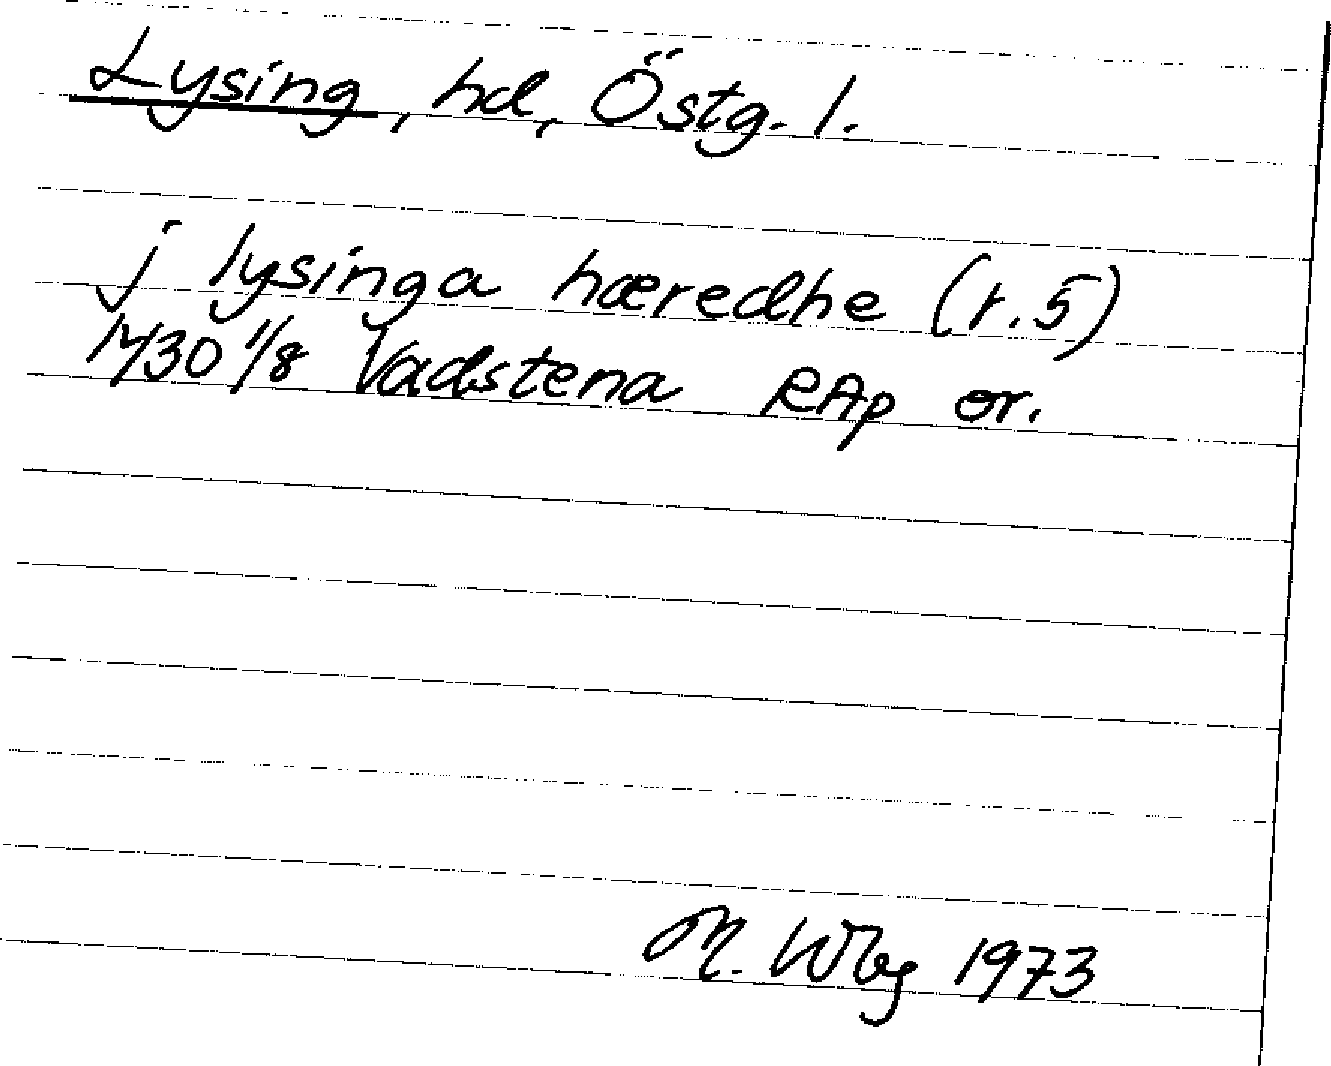 Lysing, hd, Östg. l.
j lysinga hæredhe (r. 5)
1430 1/8 Vadstena RAp or.
M. Wbg 1973